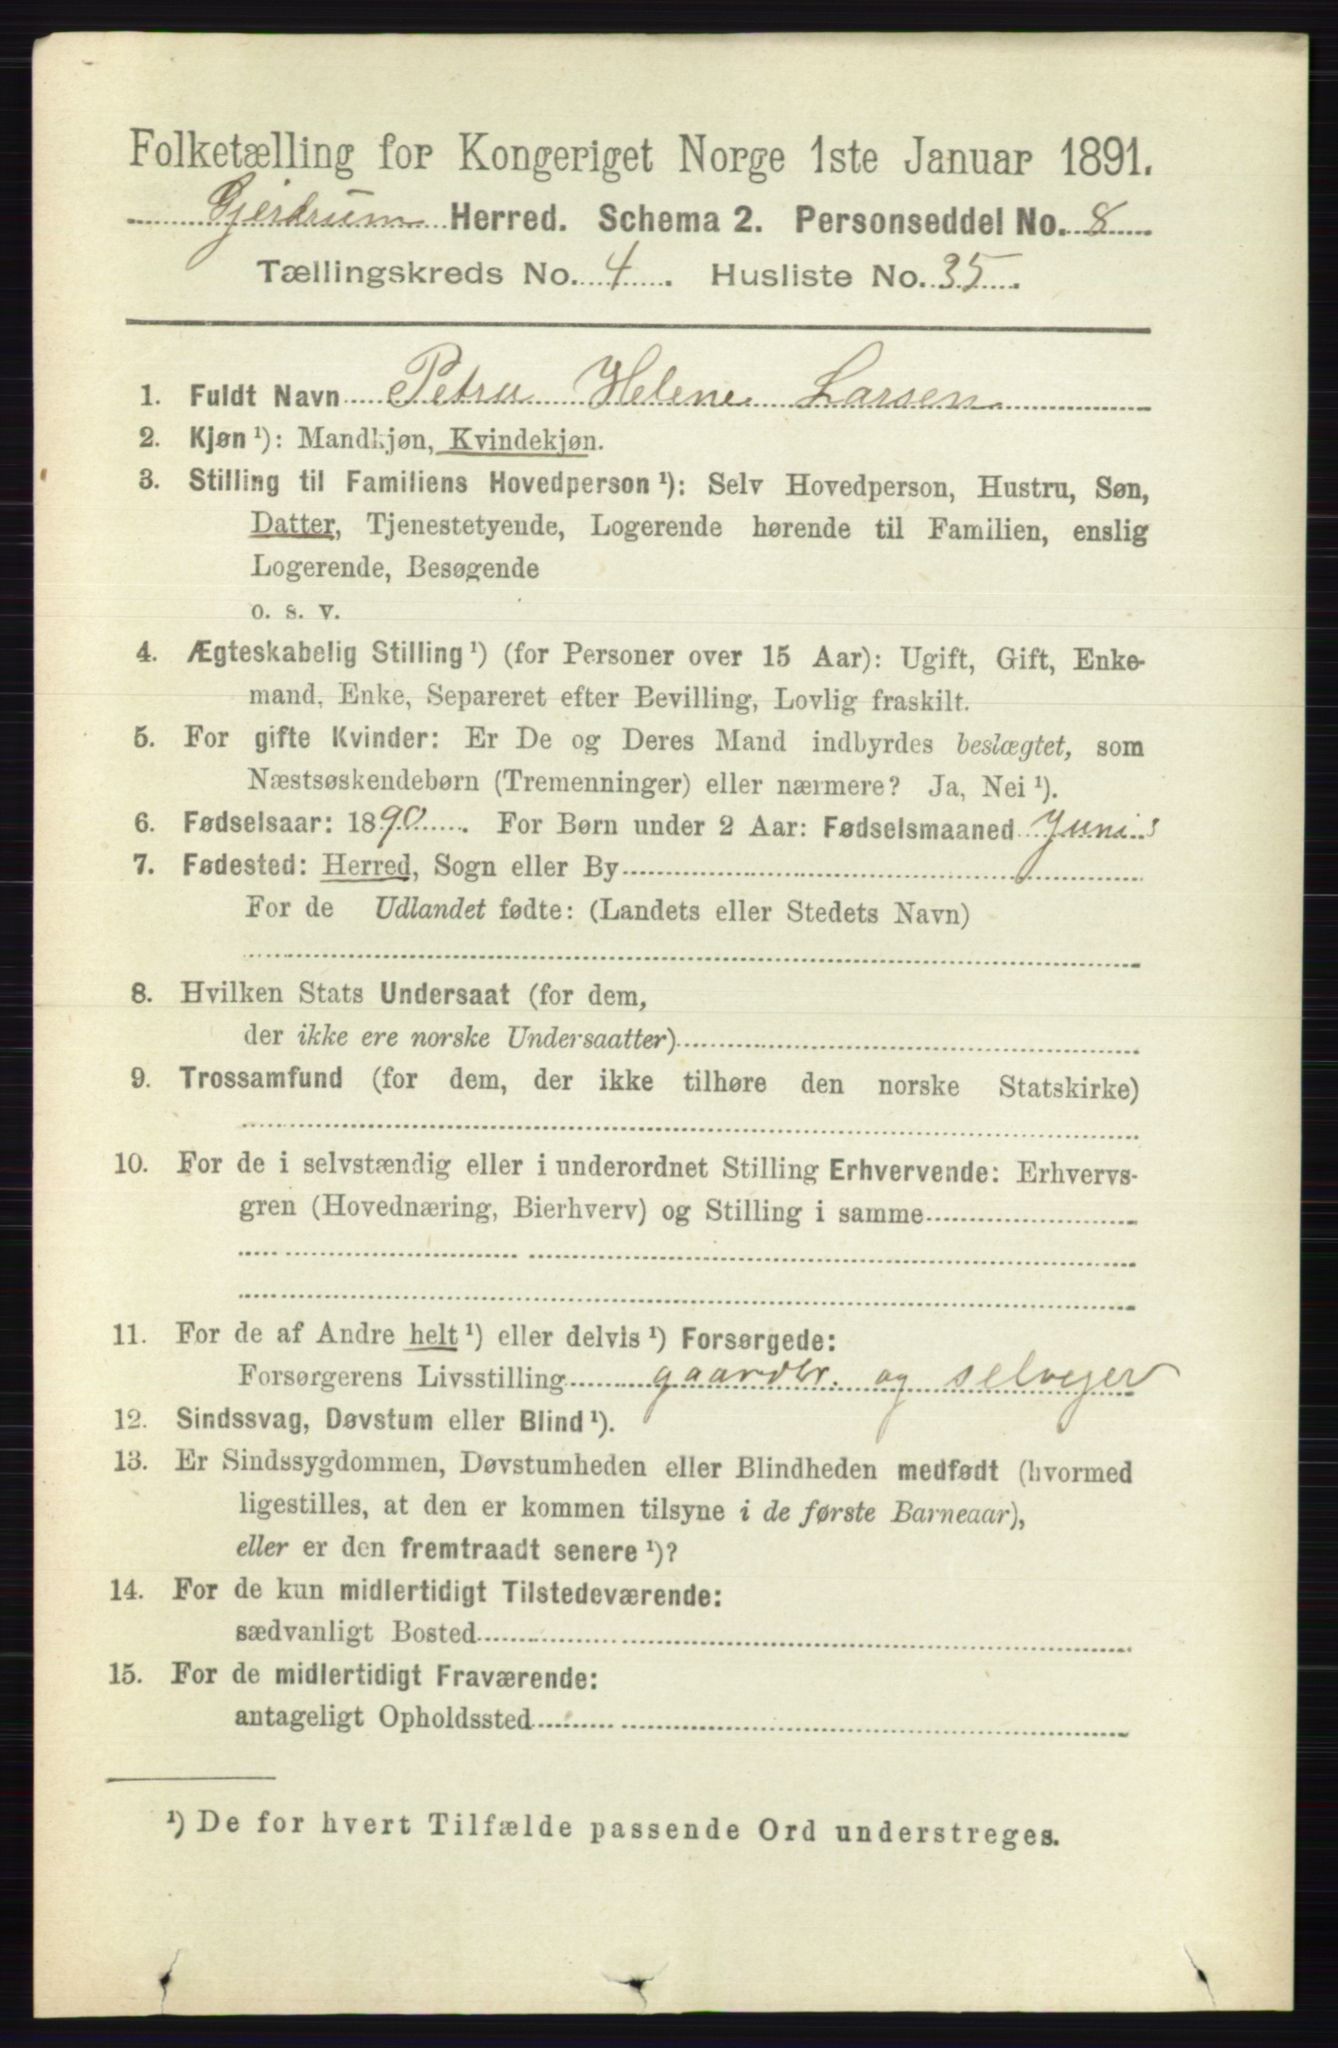 Folketælling for Kongeriget Norge 1ste Januar 1891.
Gjerdrum Herred. Schema 2. Personseddel No. 8
Tællingskreds No. 4. Husliste No. 35.
1. Fuldt Navn Petra Helene Larsen
2. Kjøn ¹): Mandkjøn, Kvindekjøn.
3. Stilling til Familiens Hovedperson ¹): Selv Hovedperson, Hustru, Søn,
Datter, Tjenestetyende, Logerende hørende til Familien, enslig
Logerende, Besøgende
o. s. v.
4. Ægteskabelig Stilling ¹) (for Personer over 15 Aar): Ugift, Gift, Enke-
mand, Enke, Separeret efter Bevilling, Lovlig fraskilt.
5. For gifte Kvinder: Er De og Deres Mand indbyrdes beslægtet, som
Næstsøskendebørn (Tremenninger) eller nærmere? Ja, Nei ¹).
6. Fødselsaar: 1890. For Børn under 2 Aar: Fødselsmaaned Juni
7. Fødested: Herred, Sogn eller By
For de Udlandet fødte: (Landets eller Stedets Navn)
8. Hvilken Stats Undersaat (for dem,
der ikke ere norske Undersaatter)
9. Trossamfund (for dem, der ikke tilhøre den norske Statskirke)
10. For de i selvstændig eller i underordnet Stilling Erhvervende: Erhvervs-
gren (Hovednæring, Bierhverv) og Stilling i samme
11. For de af Andre helt ¹) eller delvis ¹) Forsørgede:
Forsørgerens Livsstilling gaardbr. og selveier
12. Sindssvag, Døvstum eller Blind ¹).
13. Er Sindssygdommen, Døvstumheden eller Blindheden medfødt (hvormed
ligestilles, at den er kommen tilsyne i de første Barneaar),
eller er den fremtraadt senere ¹)?
14. For de kun midlertidigt Tilstedeværende:
sædvanligt Bosted
15. For de midlertidigt Fraværende:
antageligt Opholdssted
¹) De for hvert Tilfælde passende Ord understreges.